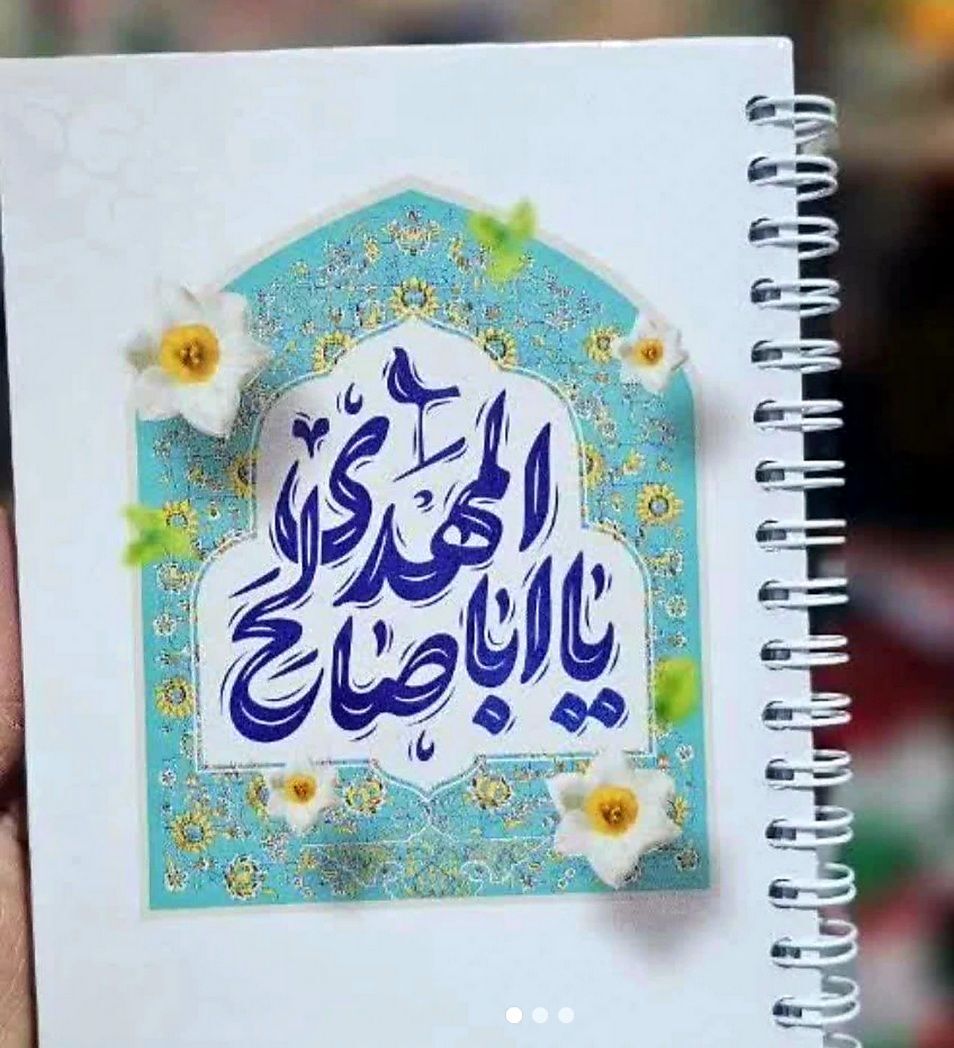 یا اباصالح
المهدی